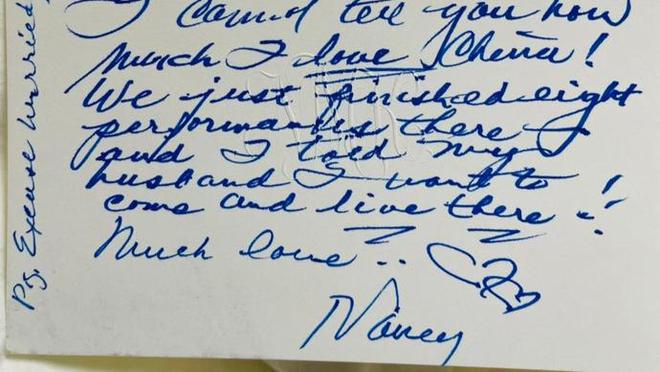 I cannot tell you how
much I love China!
We just finished eight
performances there -
and I told my
husband I want to
come and live there!
Much love..
Nancy
Ps. Excuse hurried